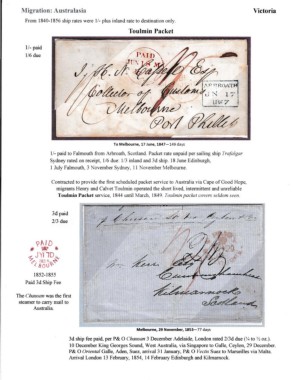 Migration: Australasia
Victoria
From 1840-1856 ship rates were 1/- plus inland rate to destination only.
Toulmin Packet
1/- paid
1/6 due
PAID
Esq
Collector of Customs
Melbourne
Port Phillip
ARBROATH
JN 17
1847
To Melbourne, 17 June, 1847—146 days
1/- paid to Falmouth from Arbroath, Scotland. Packet rate unpaid per sailing ship Trafalgar
Sydney rated on receipt, 1/6 due. 1/3 inland and 3d ship. 18 June Edinburgh,
1 July Falmouth, 3 November Sydney, 11 November Melbourne.
Contracted to provide the first scheduled packet service to Australia via Cape of Good Hope,
migrants Henry and Calvert Toulmin operated the short lived, intermittent and unreliable
Toulmin Packet service, 1844 until March, 1849. Toulmin packet covers seldom seen.
3d paid
2/3 due
PAID
MELBOURNE
1852-1855
Paid 3d Ship Fee
The Chusan was the first
steamer to carry mail to
Australia.
Kilmarnock
Scotland
Melbourne, 29 November, 1853—77 days
3d ship fee paid, per P & O Chusan 5 December Adelaide, London rated 2/3d due (¼ to ½ oz.)
10 December King Georges Sound, West Australia, via Singapore to Galle, Ceylon, 29 December.
P & O Oriental Galle, Aden, Suez, arrival 31 January, P & O Vectis Suez to Marseilles via Malta.
Arrival London 13 February, 1854, 14 February Edinburgh and Kilmarnock.